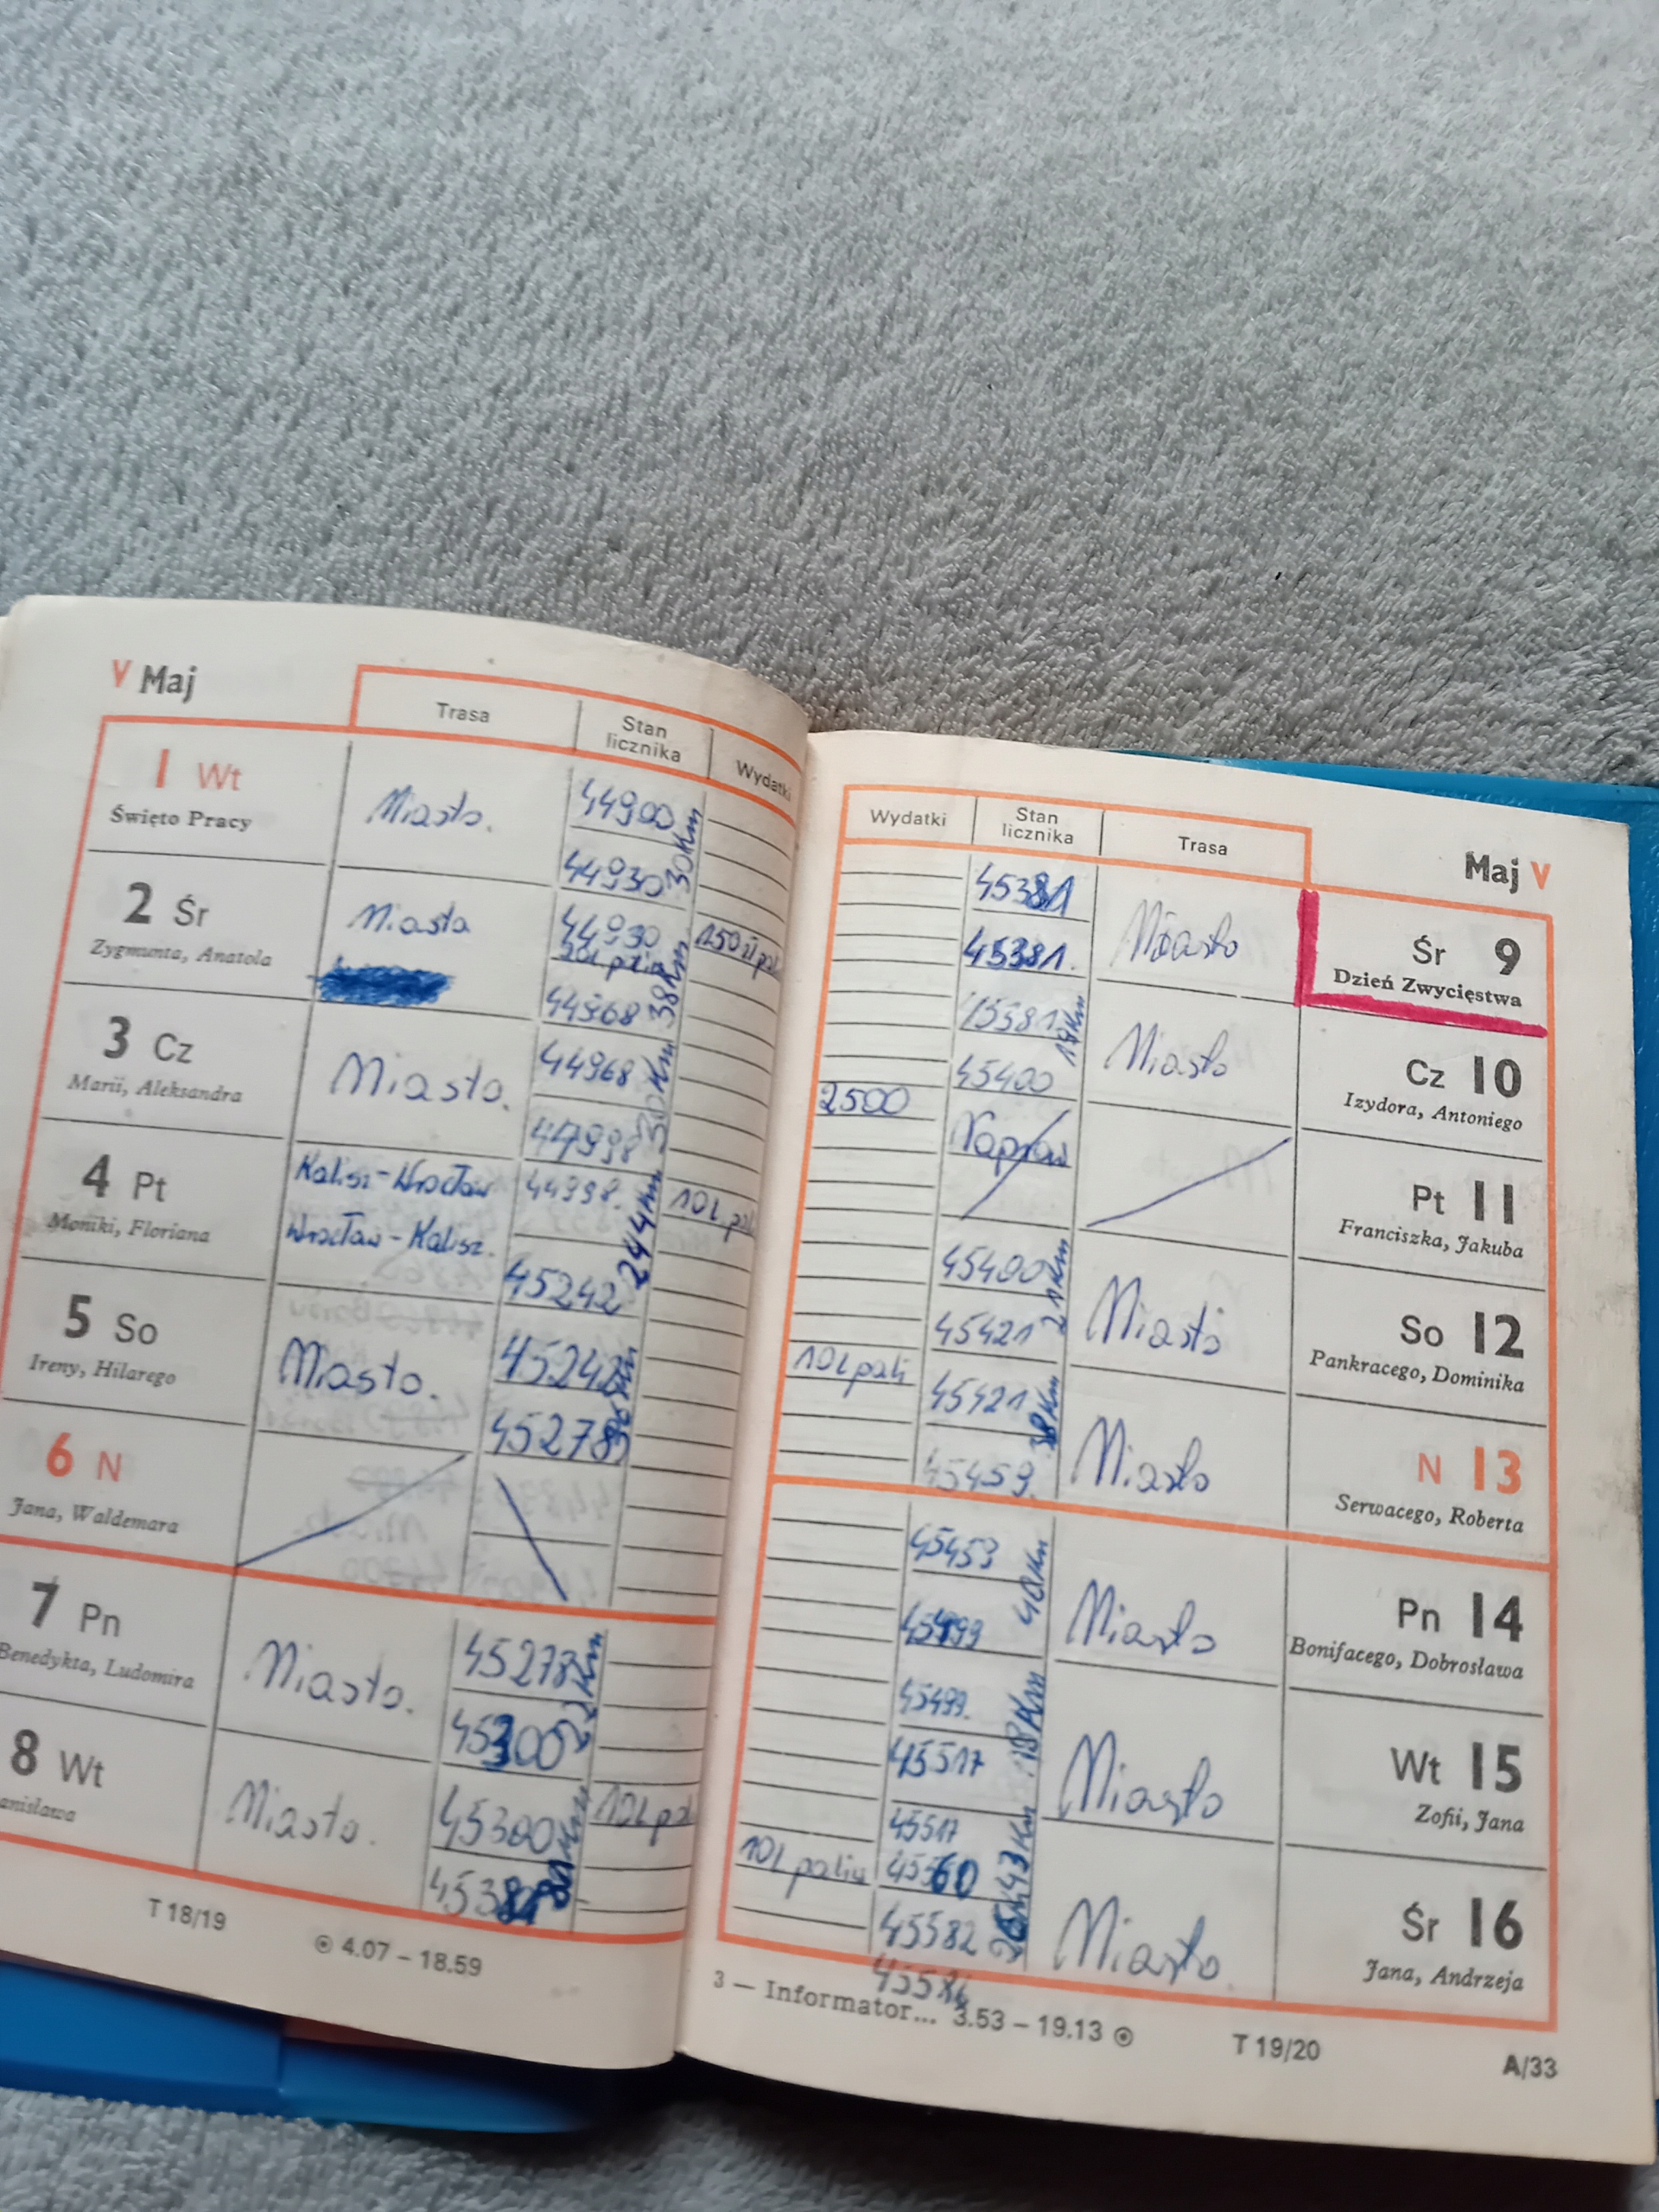 V Maj
Trasa
Stan
licznika
Wydatki
1 Wt
Święto Pracy
Miasto.
44900
44930
30Km
2 Śr
Zygmunta, Anatola
Miasta
44930
44968
38Km
150 zł pal
3 Cz
Marii, Aleksandra
Miasto.
44968
44998
30Km
4 Pt
Moniki, Floriana
Kalisz-Wrocław
Wrocław-Kalisz.
44998.
45242
244Km
10L pal
5 So
Ireny, Hilarego
Miasto.
45242
45278
36Km
6 N
Jana, Waldemara
7 Pn
Benedykta, Ludomira
Miasto.
45278
45300
22Km
8 Wt
anisława
Miasto.
45300
45381
81Km
10L pal
T 18/19
4.07 – 18.59
Wydatki
Stan
licznika
Trasa
Maj V
45381
45381.
Miasto
Śr 9
Dzień Zwycięstwa
45381
45400
19Km
Miasto
Cz 10
Izydora, Antoniego
2500
Napraw
Pt 11
Franciszka, Jakuba
45400
45421
21Km
Miasto
So 12
Pankracego, Dominika
10L pali
45421
45459.
38Km
Miasto
N 13
Serwacego, Roberta
45459
45499
40Km
Miasto
Pn 14
Bonifacego, Dobrosława
45499.
45517
18Km
Miasto
Wt 15
Zofii, Jana
10L paliw
45517
45560
43Km
45582
Miasto.
Śr 16
Jana, Andrzeja
3 — Informator...
3.53 – 19.13
T 19/20
A/33